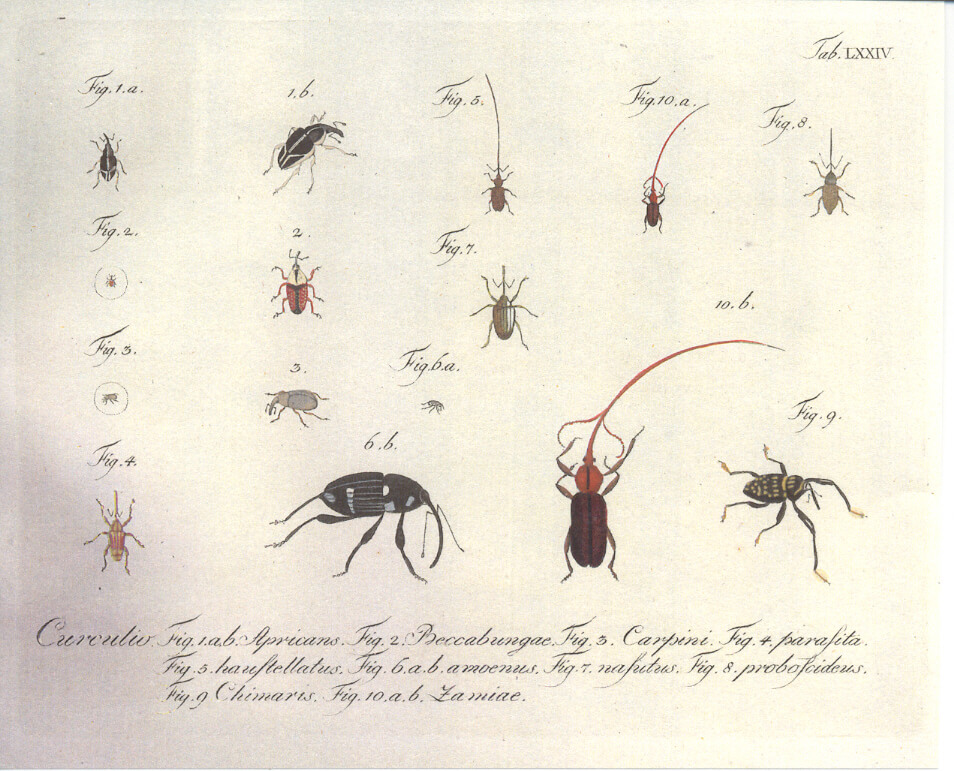 Tab. LXXIV.
Fig. 1. a.
1. b.
Fig. 5.
Fig. 10. a.
Fig. 8.
Fig. 2.
2.
Fig. 7.
10. b.
Fig. 3.
3.
Fig. 6. a.
Fig. 9.
Fig. 4.
6. b.
Curculio. Fig. 1. a. b. Apricans. Fig. 2. Beccabungae. Fig. 3. Carpini. Fig. 4. paraſita.
Fig. 5. hauſtellatus. Fig. 6. a. b. amoenus. Fig. 7. naſutus. Fig. 8. proboſcideus.
Fig. 9 Chimaris. Fig. 10. a. b. Zamiae.